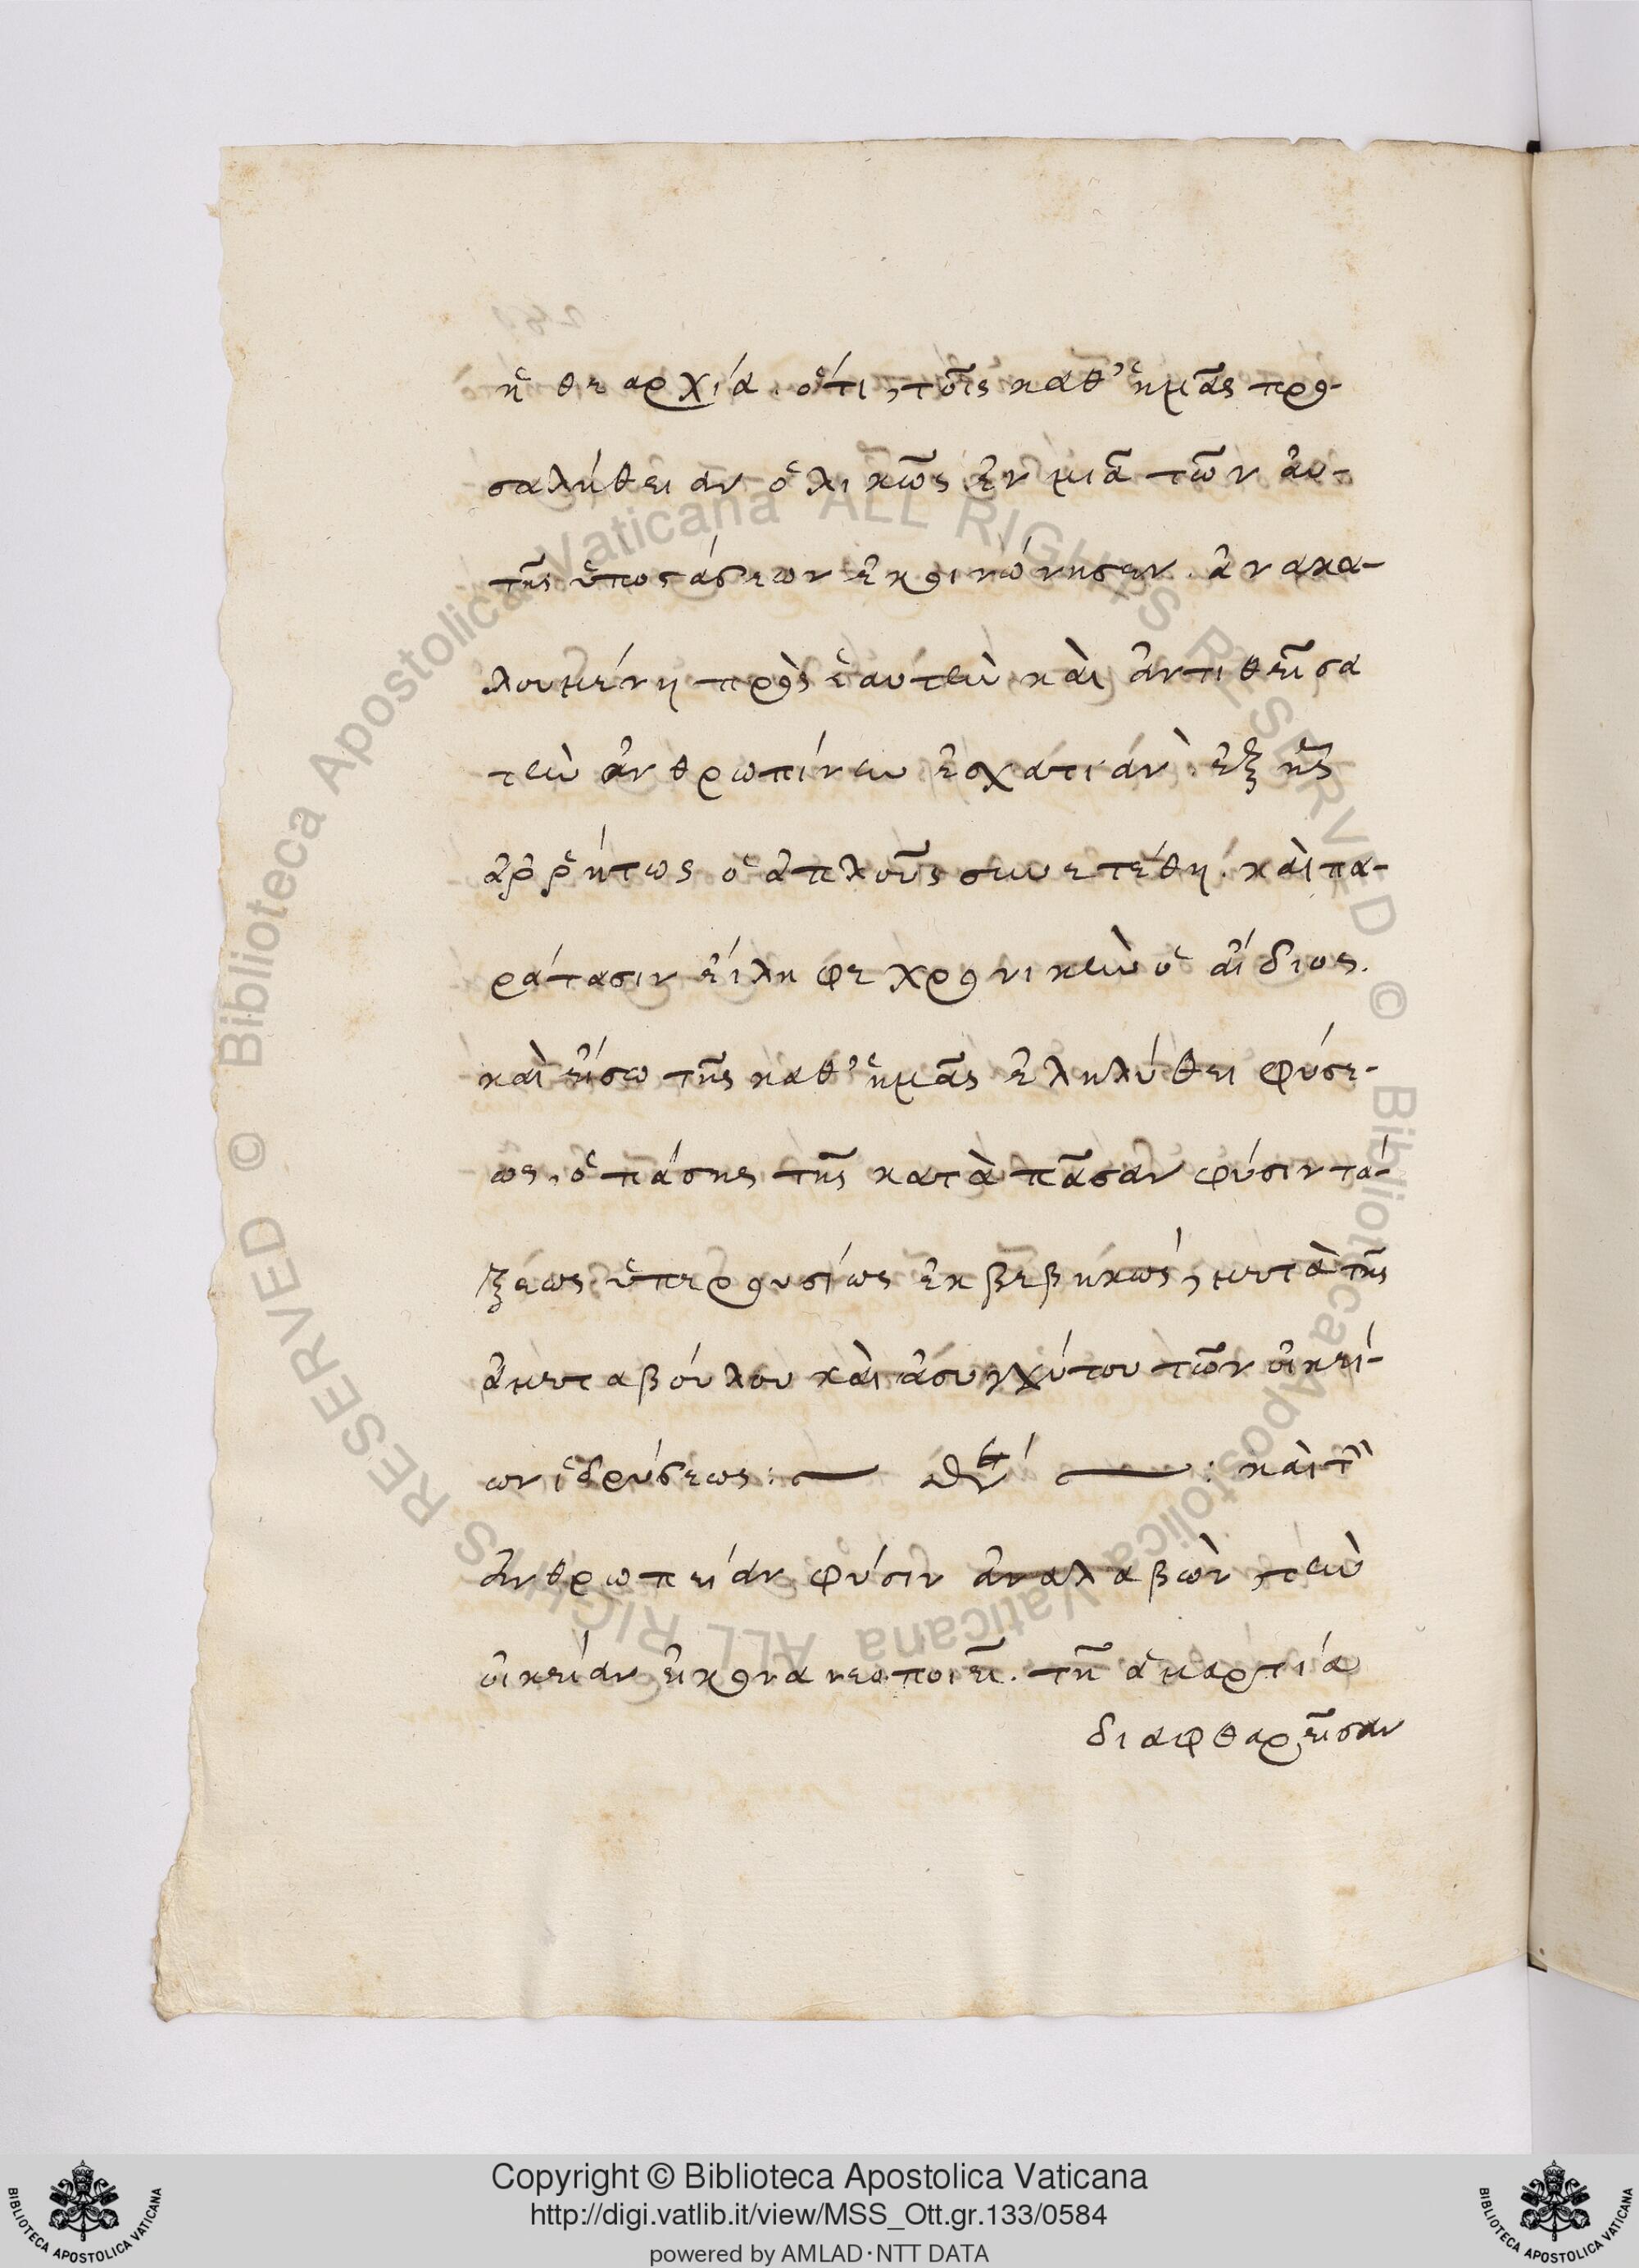 ἡ θεαρχία. ὅτι, τοῖς καθ' ἡμᾶς πρὸ-
σαλήθειαν ὁλικῶς ἐν μιᾷ τῶν αὐ-
τῆς ὑποστάσεων ἐκοινώνησεν. ἀνακα-
λουμένη πρὸς ἑαυτὴν καὶ ἀντιθεῖσα
τὴν ἀνθρωπίνην ἐσχατιάν. ἐξ ἧς
ἀῤῥήτως ὁ ἁπλοῦς συνετέθη. καὶ πα-
ράτασιν εἴληφε χρονικὴν ὁ ἀΐδιος.
καὶ εἴσω τῆς καθ' ἡμᾶς ἐληλύθει φύσε-
ως, ὁ πάσης τῆς κατὰ πᾶσαν φύσιν τά-
ξεως ὑπερουσίως ἐκβεβηκώς, μετὰ τῆς
ἀμεταβόλου καὶ ἀσυγχύτου τῶν οἰκεί-
ων ἱδρύσεως: καὶ τὴν
ἀνθρωπείαν φύσιν ἀναλαβὼν, τὴν
οἰκείαν εἰκόνα νεοποιεῖ. τῇ ἁμαρτίᾳ
διαφθαρεῖσαν
Copyright © Biblioteca Apostolica Vaticana
http://digi.vatlib.it/view/MSS_Ott.gr.133/0584
powered by AMLAD·NTT DATA
BIBLIOTECA APOSTOLICA VATICANA
BIBLIOTECA APOSTOLICA VATICANA
© Biblioteca Apostolica Vaticana ALL RIGHTS RESERVED
© Biblioteca Apostolica Vaticana ALL RIGHTS RESERVED